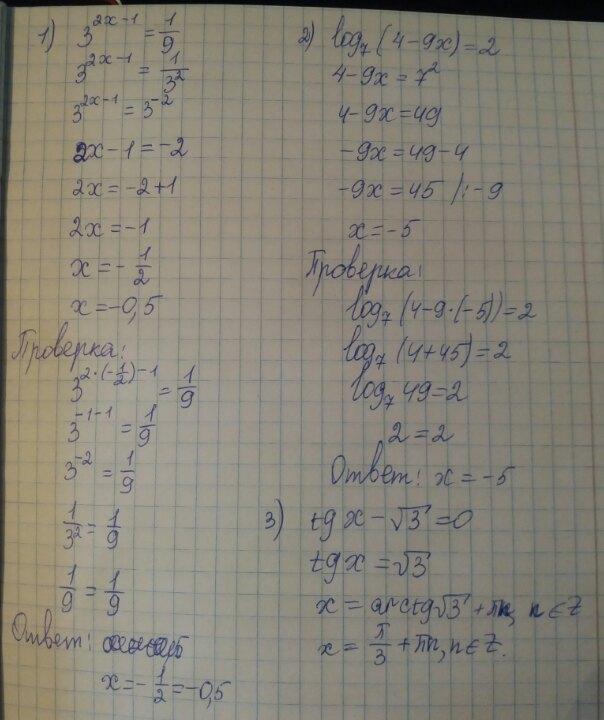 1) 3^{2x-1} = 1/9
3^{2x-1} = 1/3^2
3^{2x-1} = 3^{-2}
2x-1 = -2
2x = -2+1
2x = -1
x = -1/2
x = -0,5
Проверка:
3^{2·(-1/2)-1} = 1/9
3^{-1-1} = 1/9
3^{-2} = 1/9
1/3^2 = 1/9
1/9 = 1/9
Ответ:
x = -1/2 = -0,5
2) log_7 (4-9x) = 2
4-9x = 7^2
4-9x = 49
-9x = 49-4
-9x = 45 /:-9
x = -5
Проверка:
log_7 (4-9·(-5)) = 2
log_7 (4+45) = 2
log_7 49 = 2
2 = 2
Ответ: x = -5
3) tg x - √3 = 0
tg x = √3
x = arctg √3 + πn, n ∈ Z
x = π/3 + πn, n ∈ Z.